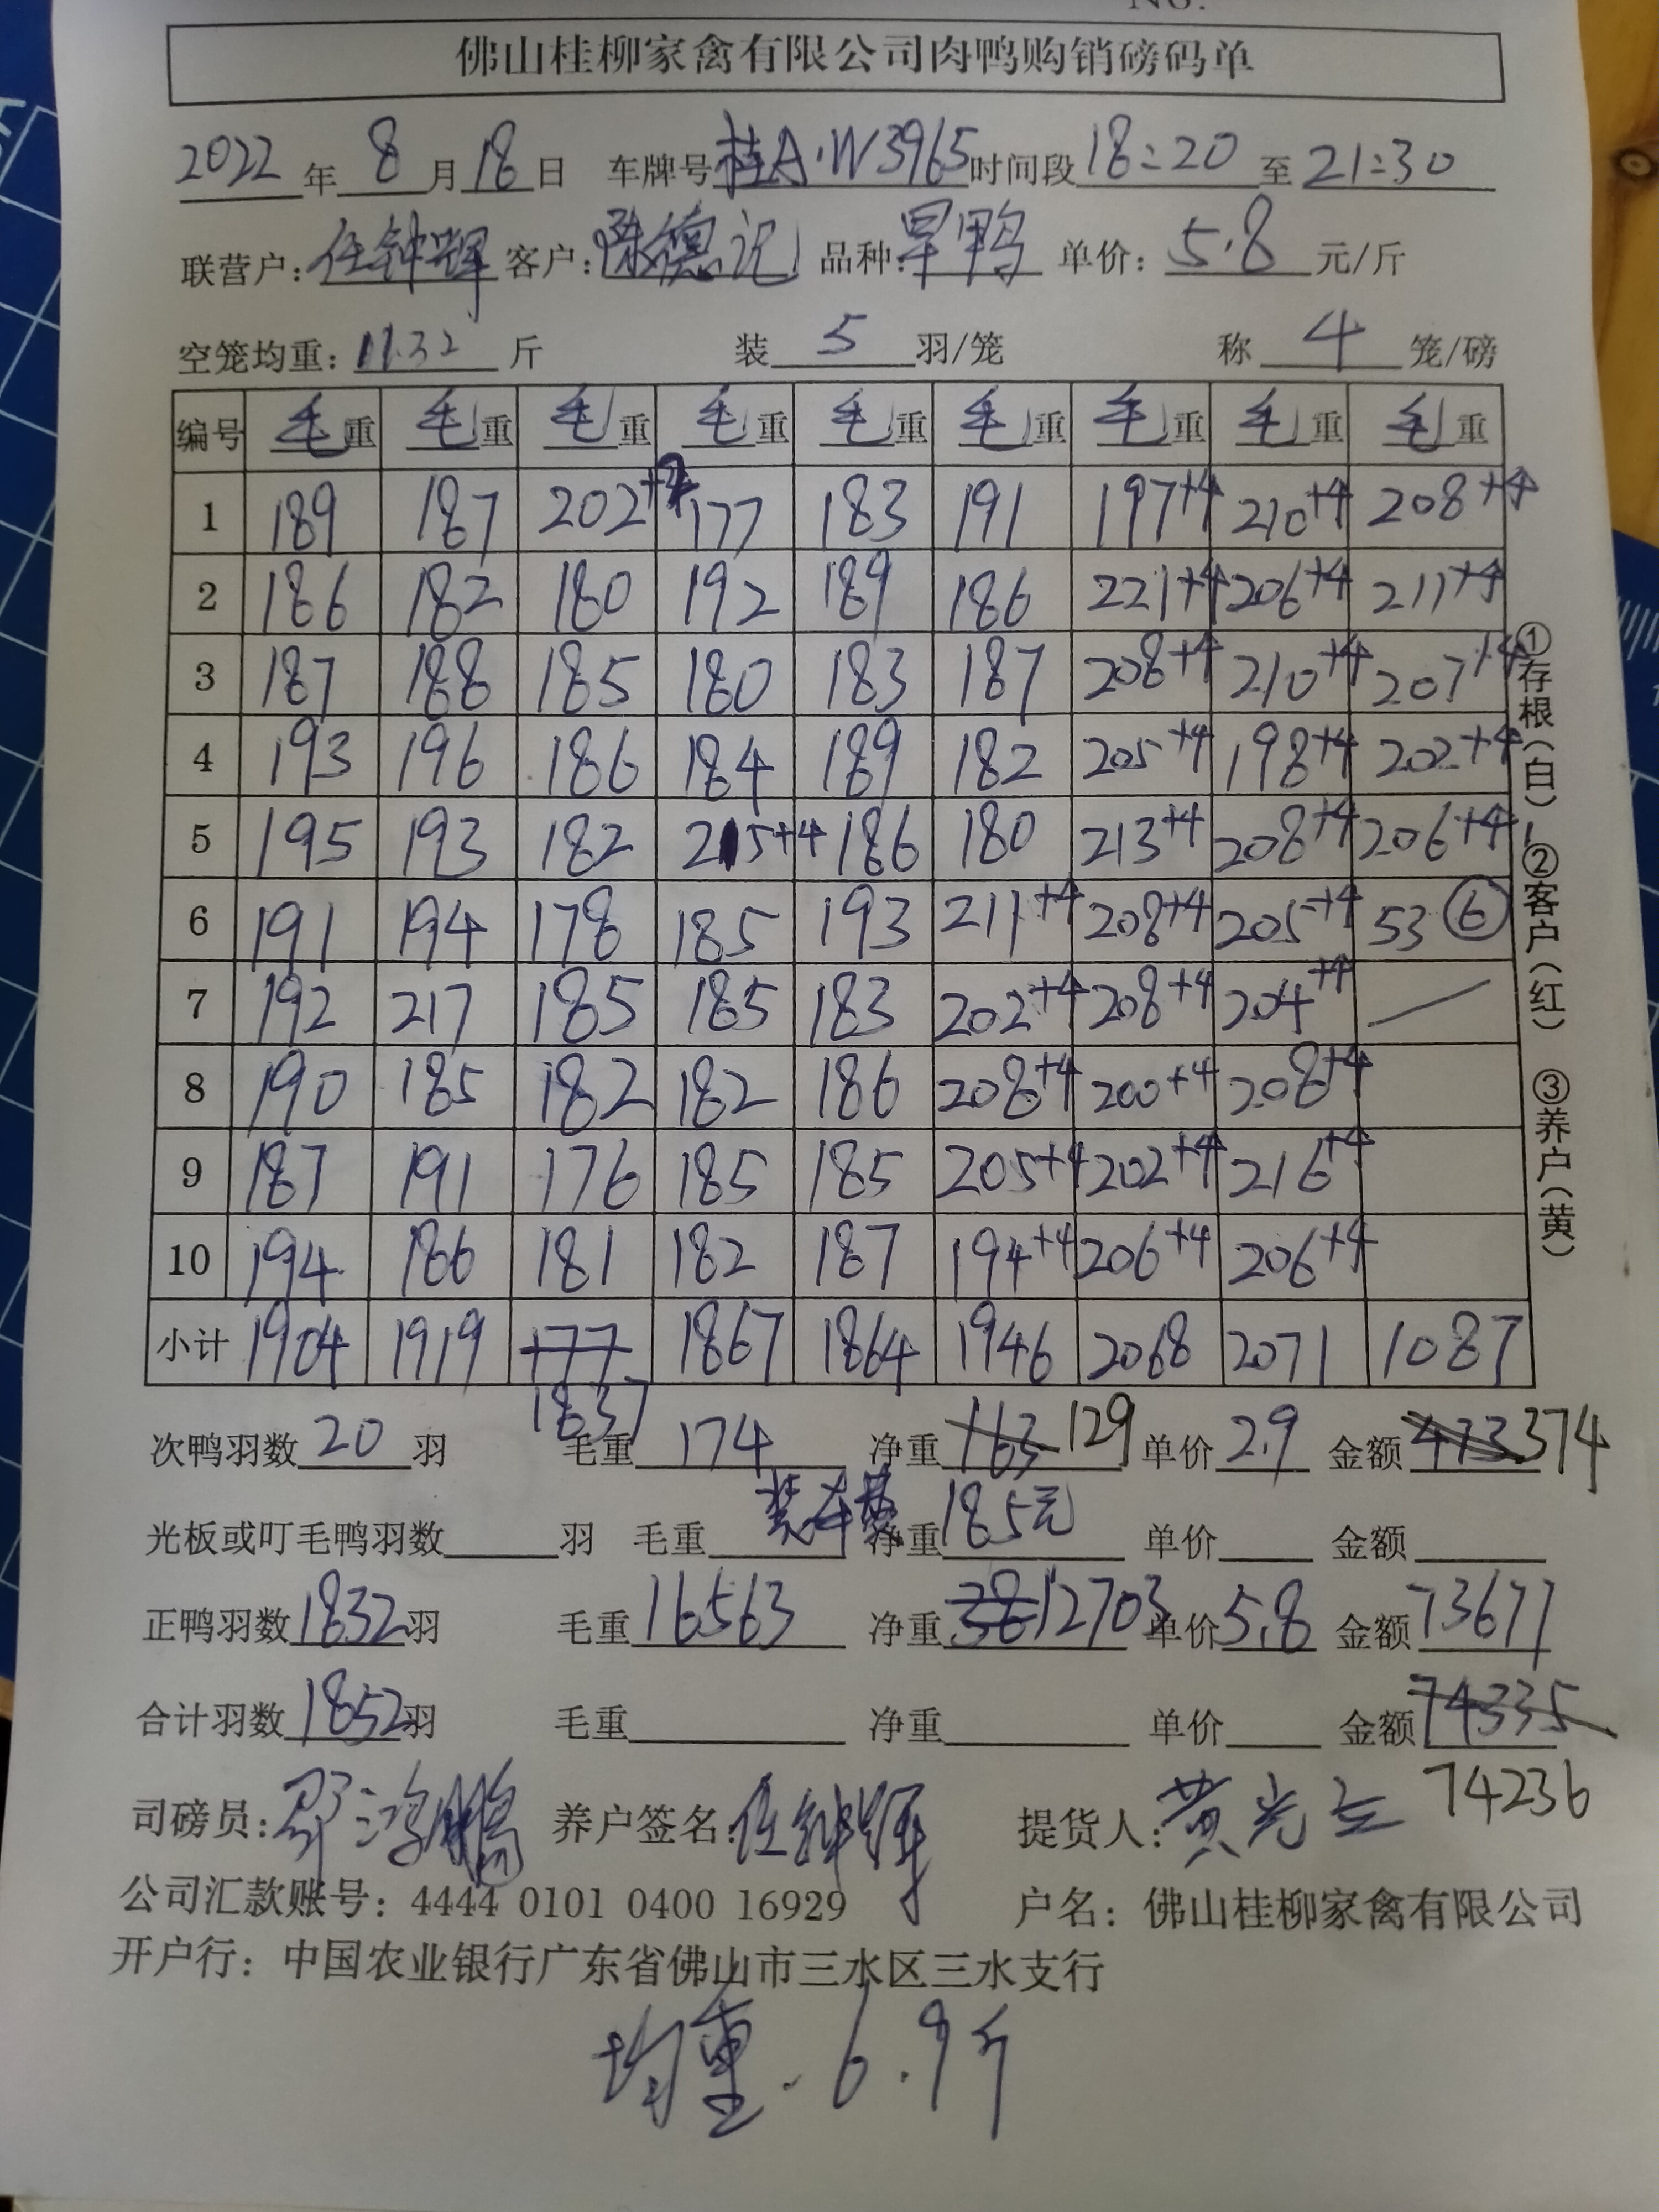 佛山桂柳家禽有限公司肉鸭购销磅码单
2022年8月18日 车牌号桂A·W3965时间段18:20至21:30
联营户:任钟辉 客户:陈德记 品种:旱鸭 单价:5.8元/斤
空笼均重:11.32斤 装5羽/笼 称4笼/磅
编号 毛重 毛重 毛重 毛重 毛重 毛重 毛重 毛重 毛重
1 189 187 202 177 183 191 197+4 210+4 208+4
2 186 182 180 192 189 186 221+4 206+4 211+4
3 187 188 185 180 183 187 208+4 210+4 207+4
4 193 196 186 184 189 182 205+4 198+4 202+4
5 195 193 182 215+4 186 180 213+4 208+4 206+4
6 191 194 178 185 193 211+4 208+4 205+4 53 ⑥
7 192 217 185 185 183 202+4 208+4 204+4
8 190 185 182 182 186 208+4 200+4 208+4
9 187 191 176 185 185 205+4 202+4 216+4
10 194 186 181 182 187 194+4 206+4 206+4
小计 1904 1919 177 1867 1864 1946 2068 2071 1087
1837
次鸭羽数20羽 毛重174 净重163 129 单价2.9 金额473 374
装车费 185元
光板或叮毛鸭羽数 羽 毛重 净重 单价 金额
正鸭羽数1832羽 毛重16563 净重12703 单价5.8 金额73677
合计羽数1852羽 毛重 净重 单价 金额74335
74236
司磅员:邓鸿鹏 养户签名:任钟辉 提货人:黄光
公司汇款账号:4444 0101 0400 16929 户名:佛山桂柳家禽有限公司
开户行:中国农业银行广东省佛山市三水区三水支行
均重.6.9斤
①存根(白) ②客户(红) ③养户(黄)